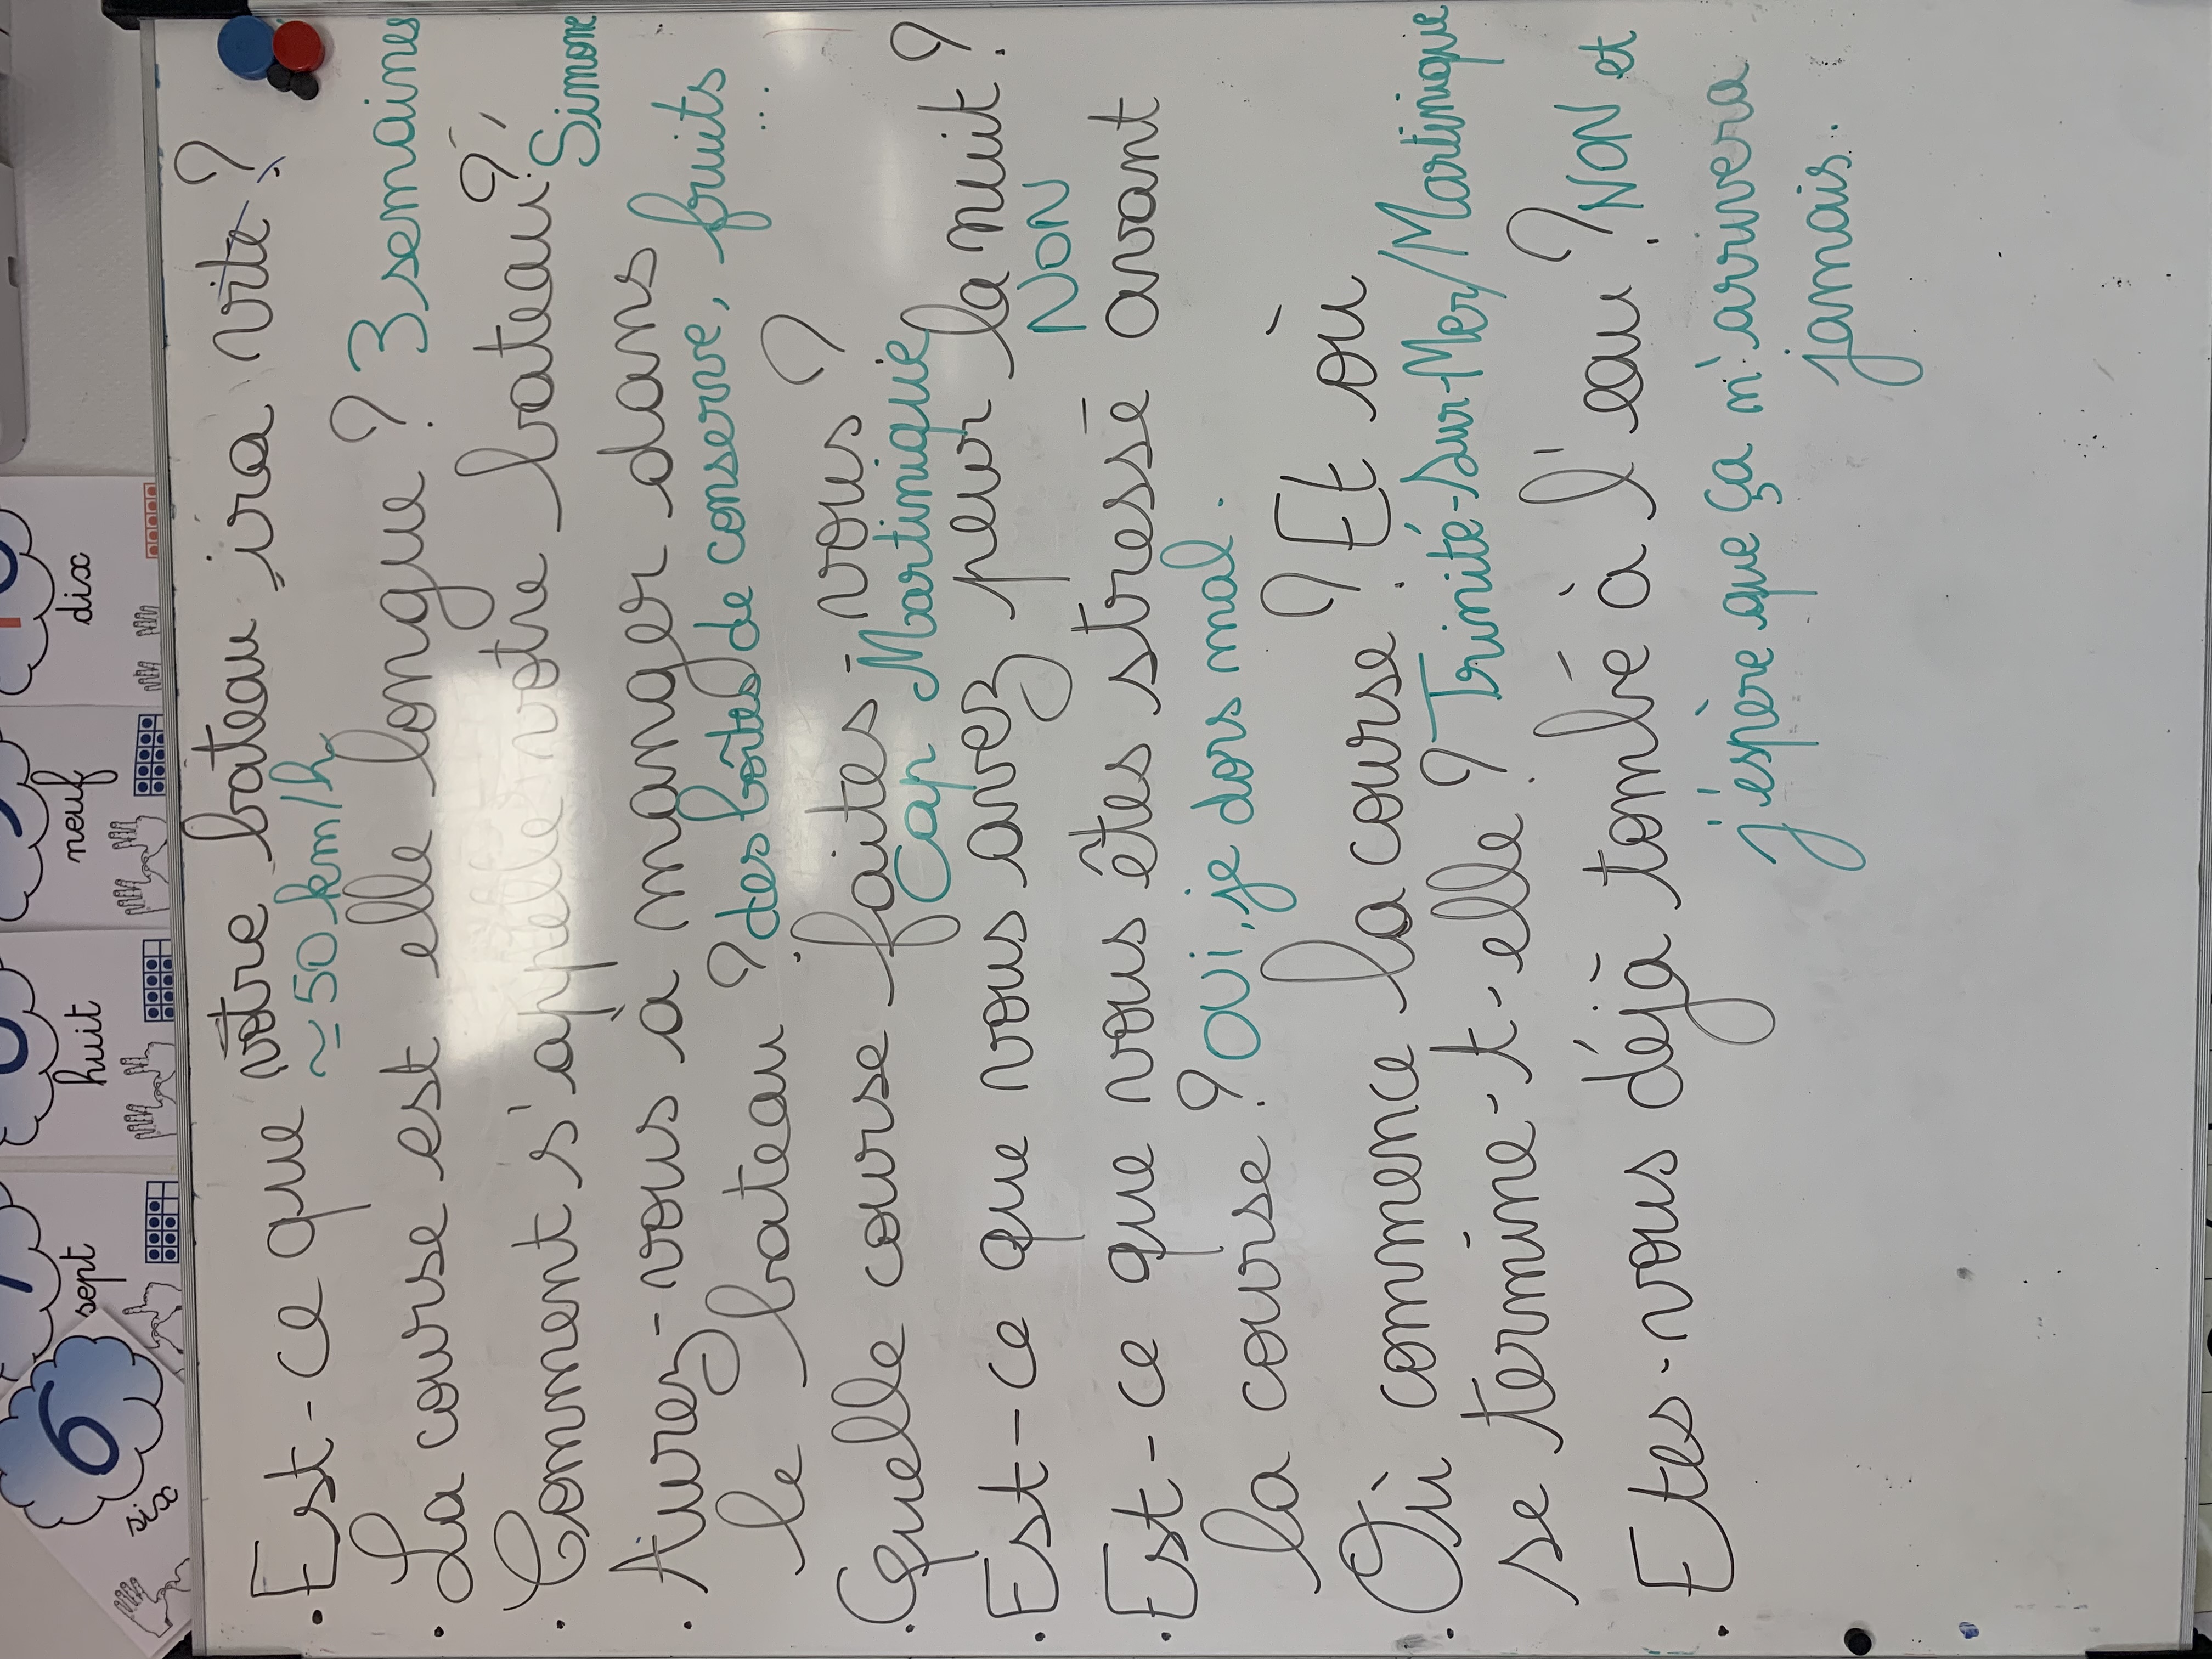 six
sept
huit
neuf
dix
6
. Est-ce que votre bateau ira vite ?
≃ 50 km/h
. La course est elle longue ? 3 semaines
. Comment s'appelle votre bateau ?
Simone
. Aurez-vous à manger dans
le bateau ? des boîtes de conserve, fruits ...
. Quelle course faites-vous ?
Cap Martinique
. Est-ce que vous avez peur la nuit ?
NON
. Est-ce que vous êtes stressé avant
la course ? OUI, je dors mal.
. Où commence la course ? Et où
se termine-t-elle ? Trinité-Sur-Mer/Martinique
. Etes-vous déjà tombé à l'eau ? NON et
j'espère que ça m'arrivera
jamais..